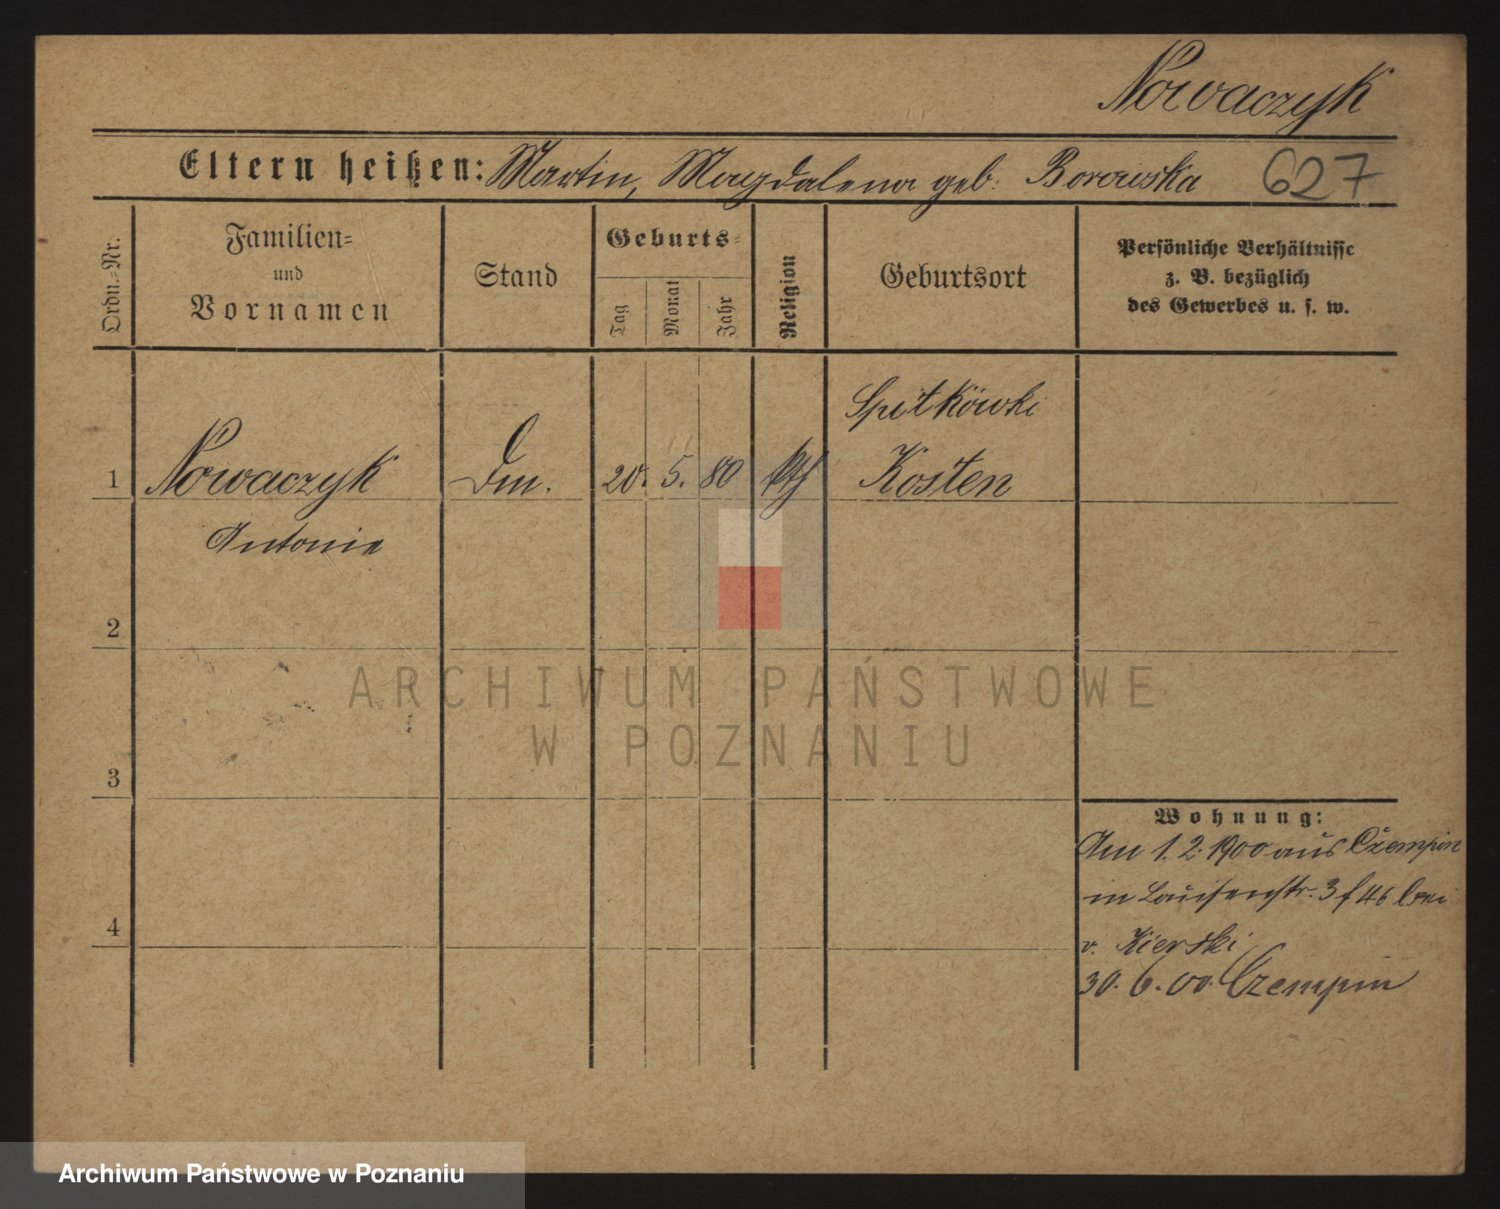 Nowaczyk
Eltern heißen: Martin, Magdalena geb. Borowska 627
Ordn.-Nr.
Familien-
und
Vornamen
Stand
Geburts-
Tag
Monat
Jahr
Religion
Geburtsort
Persönliche Verhältnisse
z. B. bezüglich
des Gewerbes u. s. w.
Spitköwki
1 Nowaczyk Dm. 20. 5. 80 kth Kosten
Antonie
2
3
4
ARCHIWUM PAŃSTWOWE
W POZNANIU
Wohnung:
Am 1.2.1900 aus Czempin
in Louisenstr. 3 f 46 bei
v. Kierski
30.6.00. Czempin
Archiwum Państwowe w Poznaniu